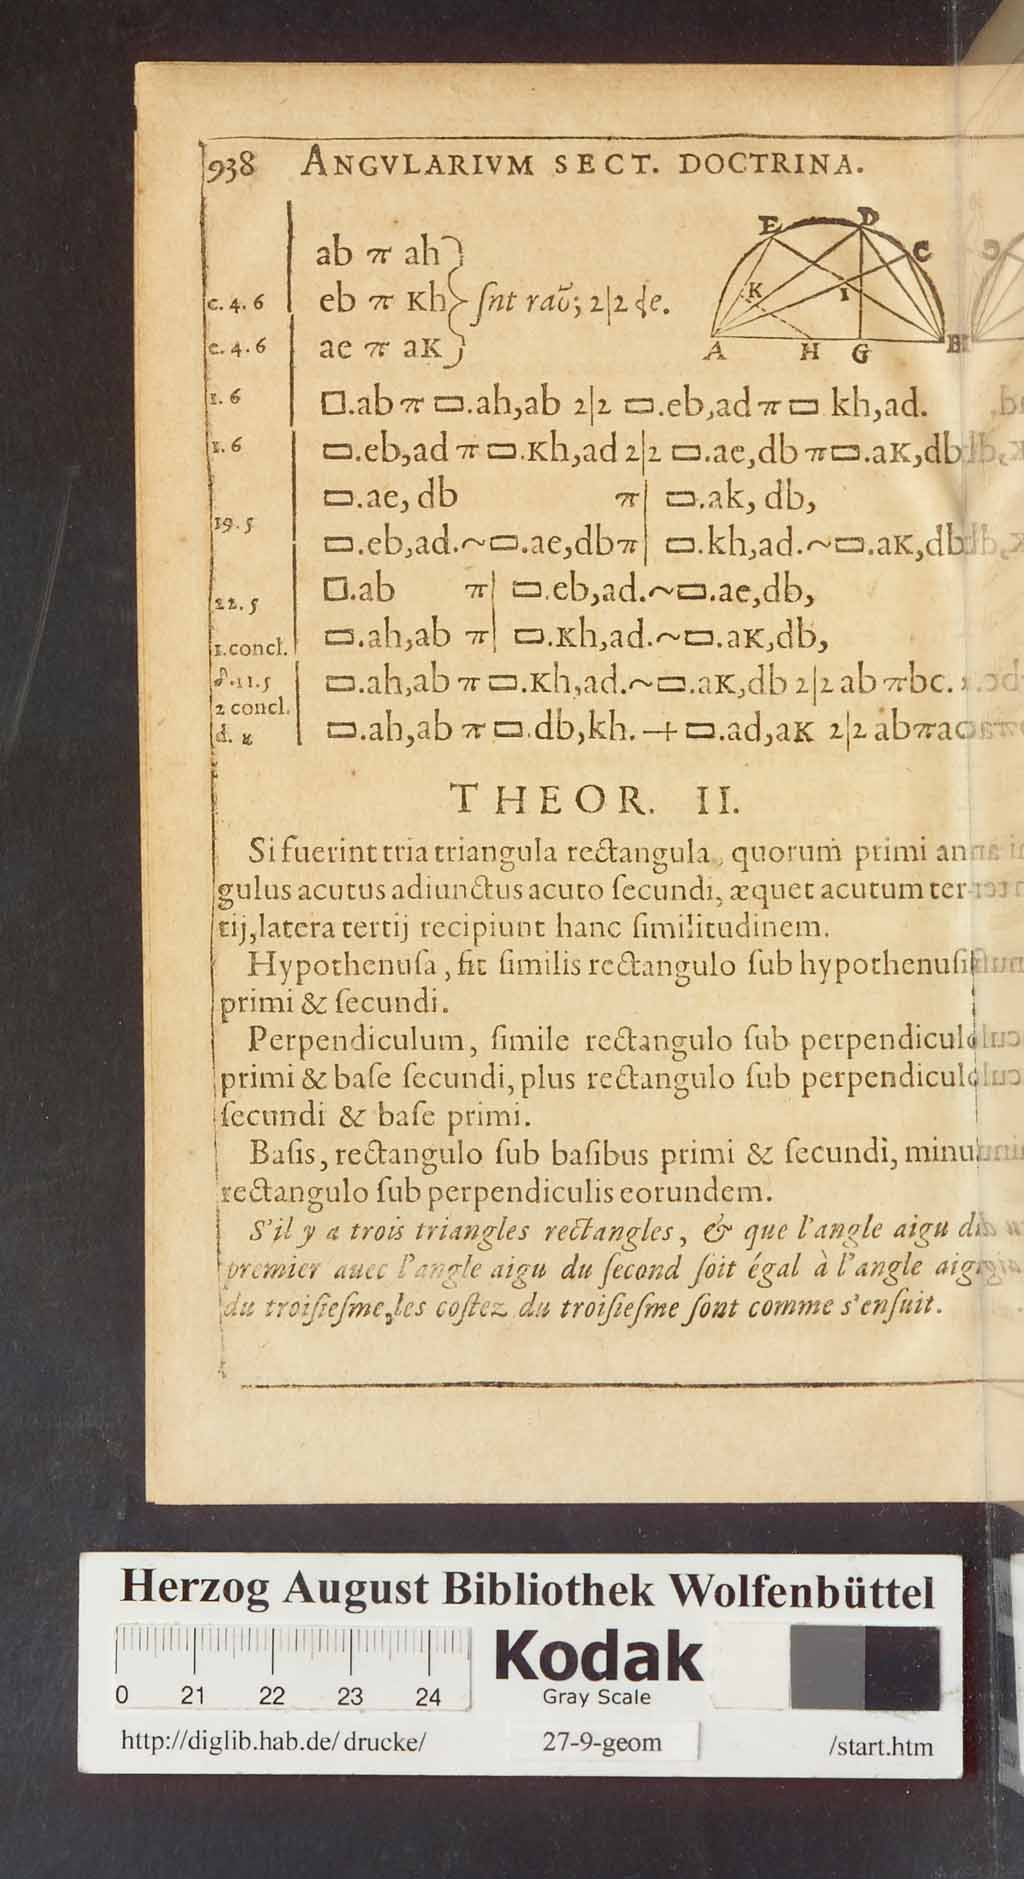 938 ANGVLARIVM SECT. DOCTRINA.
E D C K I A H G B
ab π ah
c. 4. 6 eb π Kh } ſnt raō; 2|2 de.
c. 4. 6 ae π aK
1. 6 □.ab π ▭.ah,ab 2|2 ▭.eb,ad π ▭ kh,ad.
1. 6 ▭.eb,ad π ▭.Kh,ad 2|2 ▭.ae,db π ▭.aK,db
▭.ae, db π| ▭.ak, db,
19. 5 ▭.eb,ad.~▭.ae,db π| ▭.kh,ad.~▭.aK,db
22. 5 □.ab π| ▭.eb,ad.~▭.ae,db,
1. concl. ▭.ah,ab π| ▭.Kh,ad.~▭.aK,db,
11. 5 ▭.ah,ab π ▭.Kh,ad.~▭.aK,db 2|2 ab π bc.
2 concl. d. ▭.ah,ab π ▭.db,kh. + ▭.ad,aK 2|2 ab π ac
THEOR. II.
Si fuerint tria triangula rectangula, quorum primi an
gulus acutus adiunctus acuto ſecundi, æquet acutum ter-
tij, latera tertij recipiunt hanc ſimilitudinem.
Hypothenuſa, fit ſimilis rectangulo ſub hypothenuſi
primi & ſecundi.
Perpendiculum, ſimile rectangulo ſub perpendiculo
primi & baſe ſecundi, plus rectangulo ſub perpendiculo
ſecundi & baſe primi.
Baſis, rectangulo ſub baſibus primi & ſecundi, minu
rectangulo ſub perpendiculis eorundem.
S'il y a trois triangles rectangles, & que l'angle aigu du
premier auec l'angle aigu du ſecond ſoit égal à l'angle aig
du troiſieſme, les coſtez du troiſieſme ſont comme s'enſuit.
Herzog August Bibliothek Wolfenbüttel
0 21 22 23 24
Kodak
Gray Scale
http://diglib.hab.de/drucke/ 27-9-geom /start.htm